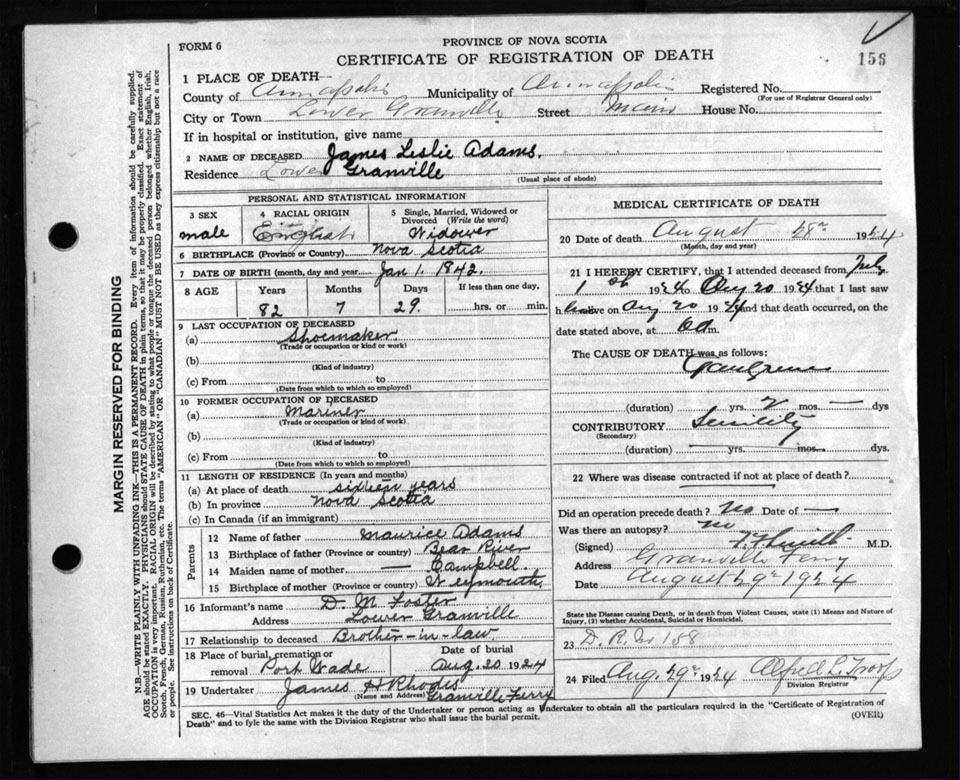 FORM 6
PROVINCE OF NOVA SCOTIA
CERTIFICATE OF REGISTRATION OF DEATH
156
1 PLACE OF DEATH—
County of Annapolis Municipality of Annapolis Registered No.
(For use of Registrar General only)
City or Town Lower Granville Street Main House No.
If in hospital or institution, give name
2 NAME OF DECEASED James Leslie Adams.
Residence Lower Granville
(Usual place of abode)
PERSONAL AND STATISTICAL INFORMATION
3 SEX 4 RACIAL ORIGIN 5 Single, Married, Widowed or Divorced (Write the word)
male English Widower
6 BIRTHPLACE (Province or Country) Nova Scotia
7 DATE OF BIRTH (month, day and year) Jan 1. 1842.
8 AGE Years Months Days If less than one day,
82 7 29. hrs. or min.
9 LAST OCCUPATION OF DECEASED
(a) Shoemaker.
(Trade or occupation or kind or work)
(b)
(Kind of industry)
(c) From to
(Date from which to which so employed)
10 FORMER OCCUPATION OF DECEASED
(a) Mariner
(Trade or occupation or kind of work)
(b)
(Kind of industry)
(c) From to
(Date from which to which so employed)
11 LENGTH OF RESIDENCE (In years and months)
(a) At place of death sixteen years
(b) In province Nova Scotia
(c) In Canada (if an immigrant)
Parents
12 Name of father Maurice Adams
13 Birthplace of father (Province or country) Bear River
14 Maiden name of mother — Campbell.
15 Birthplace of mother (Province or country) Weymouth,
16 Informant's name D. M. Foster
Address Lower Granville
17 Relationship to deceased Brother-in-law.
18 Place of burial, cremation or removal Port Wade
Date of burial Aug. 30 1924
19 Undertaker James H Rhodis
(Name and Address) Granville Ferry
MEDICAL CERTIFICATE OF DEATH
20 Date of death August 28th 1924
(Month, day and year)
21 I HEREBY CERTIFY, that I attended deceased from July
1st 1924 to Aug 20 1924 that I last saw
h alive on Aug 20 1924 and that death occurred, on
date stated above, at m.
The CAUSE OF DEATH was as follows:
Gangrene
(duration) yrs. 2 mos. — dys
CONTRIBUTORY Senility
(Secondary)
(duration) — yrs. mos. — dys.
22 Where was disease contracted if not at place of death?
Did an operation precede death? No Date of —
Was there an autopsy? no
(Signed) M.D.
Address Granville Ferry
Date August 29th 1924
State the Disease causing Death, or in death from Violent Causes, state (1) Means and Nature of Injury, (2) whether Accidental, Suicidal or Homicidal.
23 D. R. No 188
24 Filed Aug. 29th 1924
Division Registrar
SEC. 46—Vital Statistics Act makes it the duty of the Undertaker or person acting as Undertaker to obtain all the particulars required in the "Certificate of Registration of
Death" and to fyle the same with the Division Registrar who shall issue the burial permit.
(OVER)
MARGIN RESERVED FOR BINDING
N.B.—WRITE PLAINLY WITH UNFADING INK—THIS IS A PERMANENT RECORD. Every item of information should be carefully supplied.
AGE should be stated EXACTLY. PHYSICIANS should STATE CAUSE OF DEATH in plain terms, so that it may be properly classified. Exact statement of
OCCUPATION is very important. RACIAL ORIGIN will be described by stating to what people or tongue the deceased person belonged whether English, Irish,
Scotch, French, German, Russian, Ruthenian, etc. The terms "AMERICAN" OR "CANADIAN" MUST NOT BE USED as they express citizenship but not a race
or people. See instructions on back of Certificate.